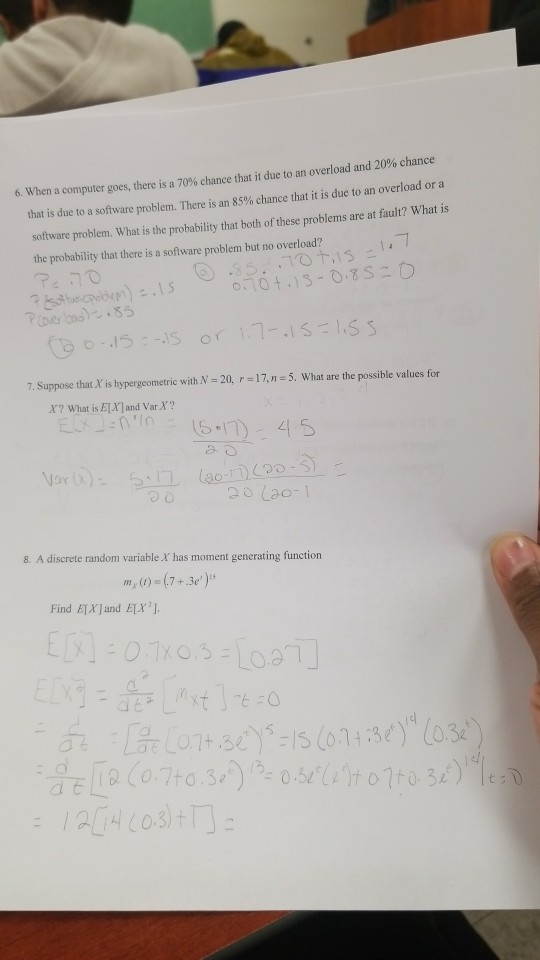 6. When a computer goes, there is a 70% chance that it due to an overload and 20% chance
that is due to a software problem. There is an 85% chance that it is due to an overload or a
software problem. What is the probability that both of these problems are at fault? What is
the probability that there is a software problem but no overload?
P= .70
P(software problem) = .15
P(overload) = .85
(a) .85. .70 + .15 = 1.7
0.70 + .15 - 0.85 = 0
(b) 0 - .15 = -.15 or 1.7 - .15 = 1.55
7. Suppose that X is hypergeometric with N = 20, r = 17, n = 5. What are the possible values for
X? What is E[X] and Var X?
E[X] =
(5·17)
20
= 4.5
Var(x) =
5·17
20
(20-17)(20-5)
20(20-1
=
8. A discrete random variable X has moment generating function
mₓ(t) = (.7 + .3eᵗ)¹⁵
Find E[X] and E[X²].
E[X] = 0.7x0.3 = [0.27]
E[X²] = d²/dt² [mxt] t=0
= d/dt = [d/dt (0.7+.3eᵗ)¹⁵ = 15(0.7+.3eᵗ)¹⁴ (0.3eᵗ)
= d/dt [12(0.7+0.3eᵗ)¹³ = 0.3eᵗ + 0.7+0.3eᵗ)¹⁴|t=0
= 12[14(0.3)+1] =